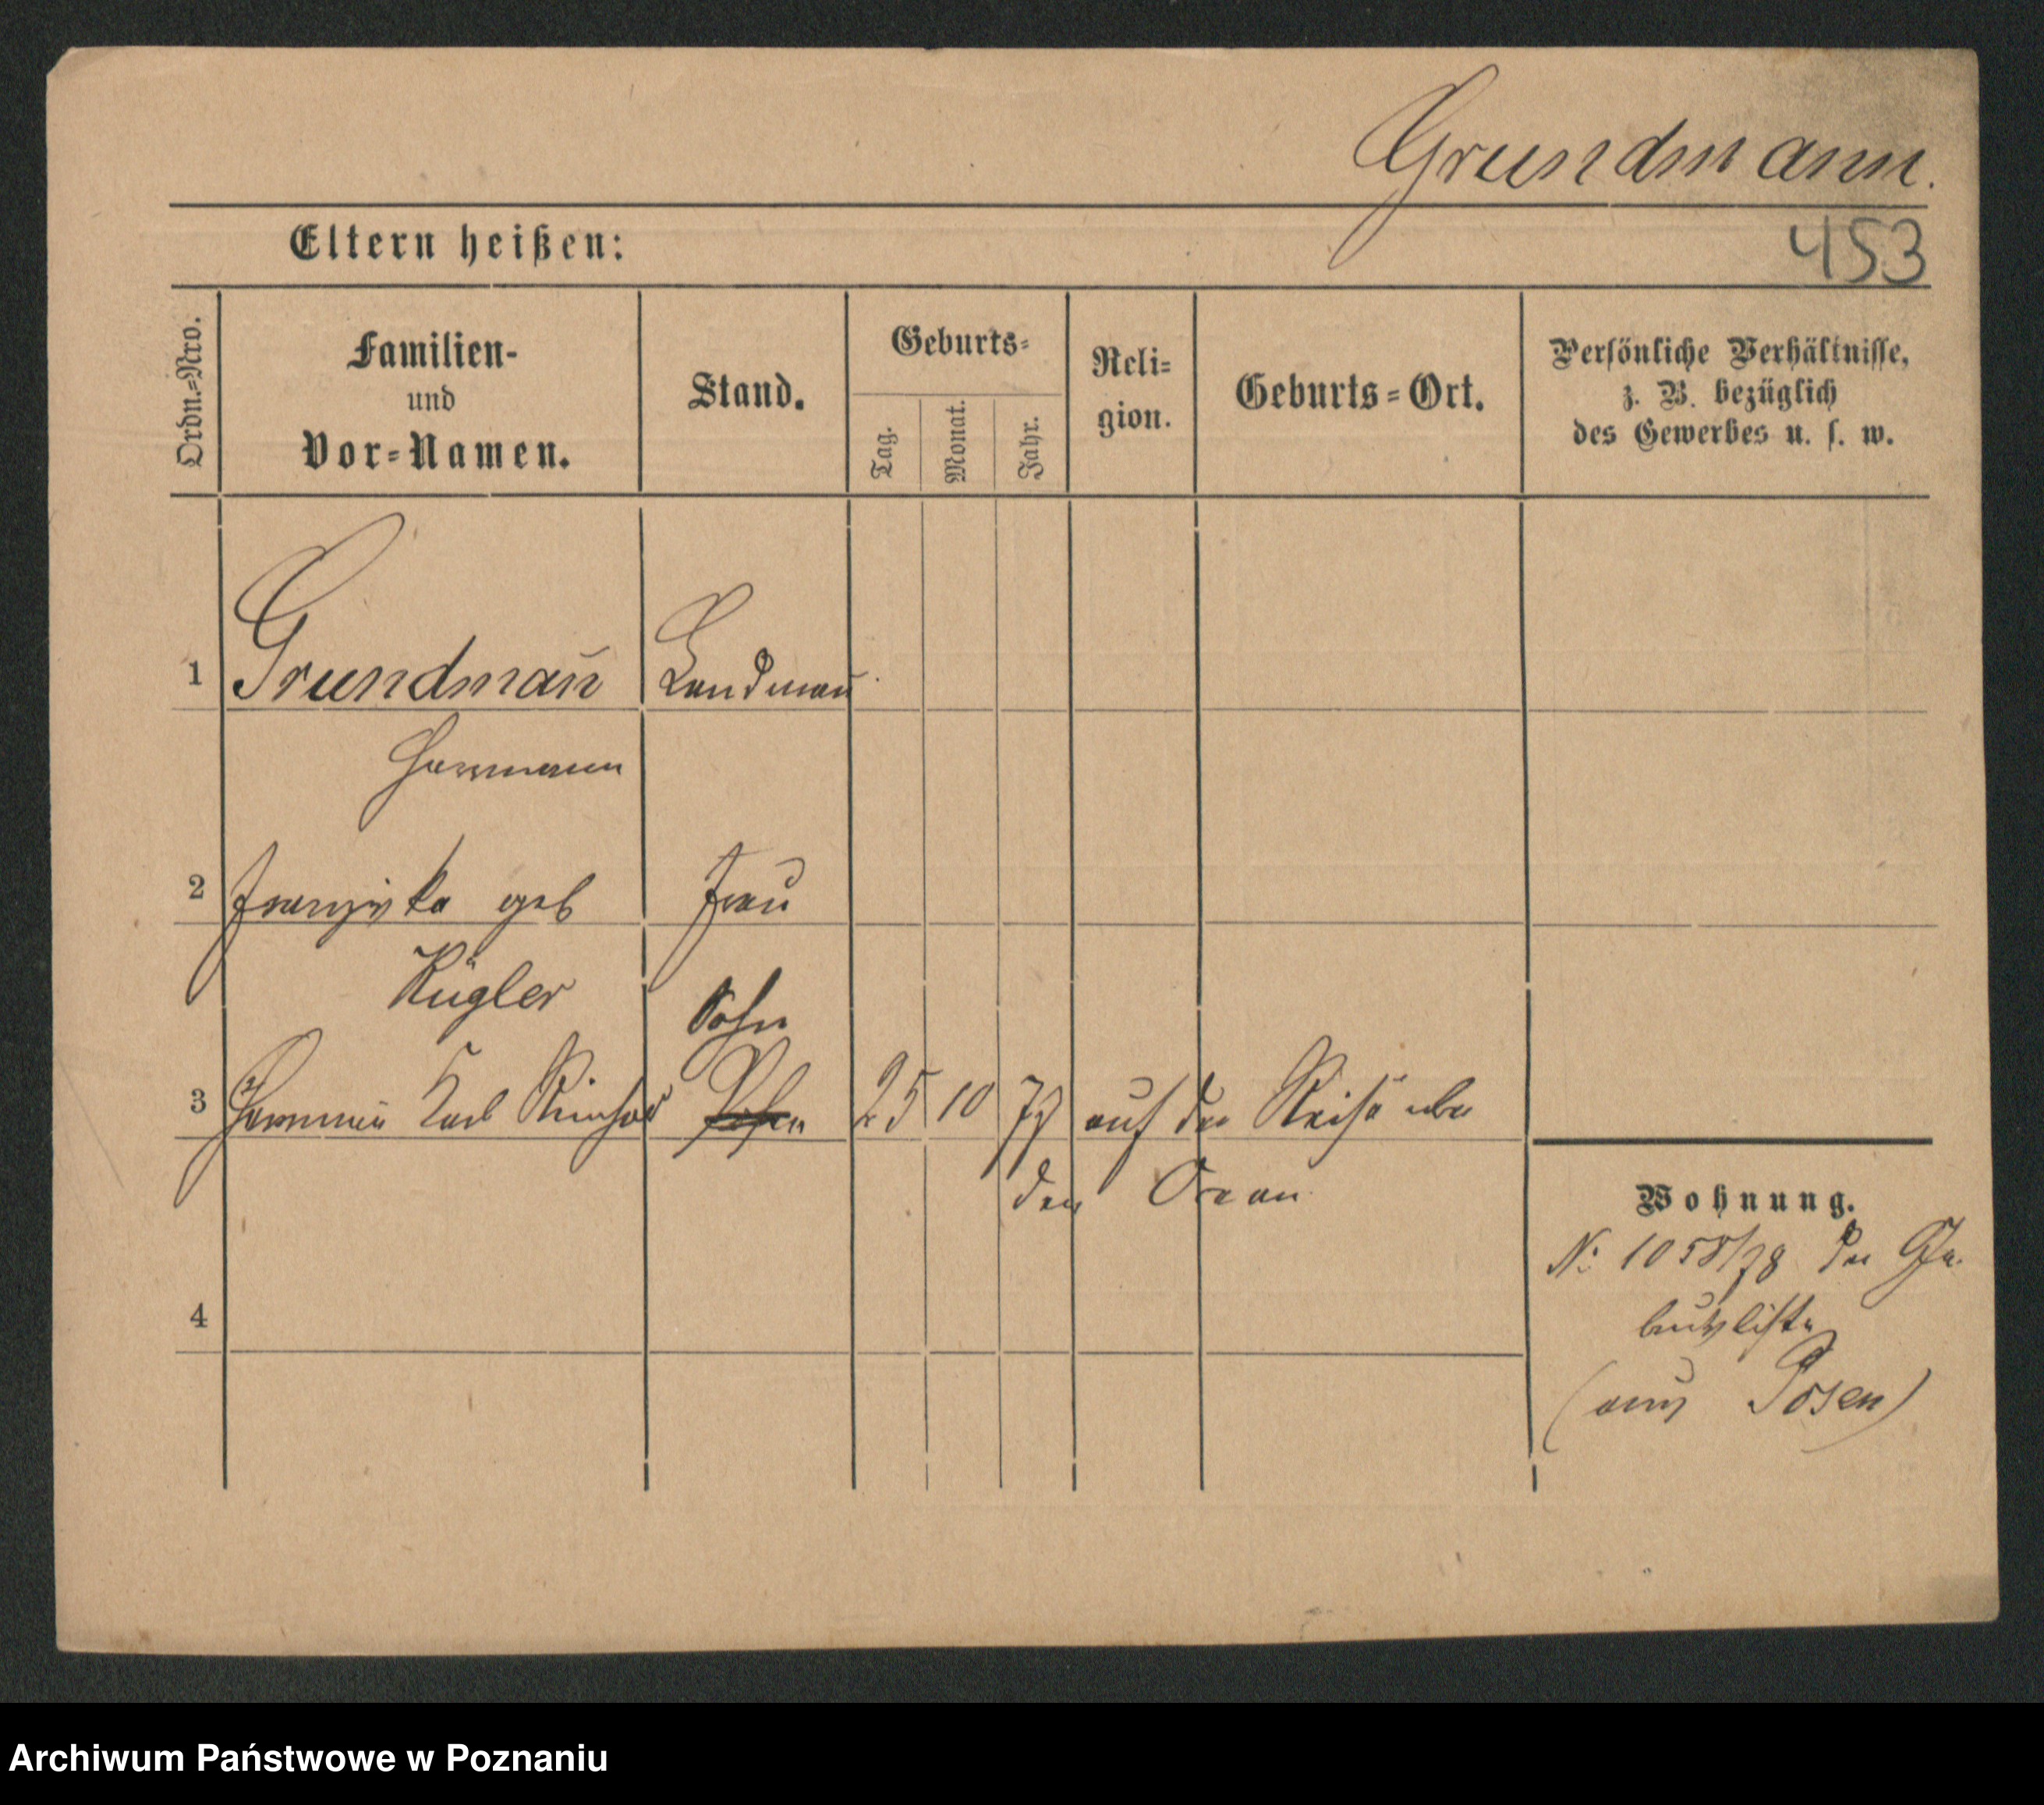 Grundmann.
Eltern heißen:
453
Ordn.=Nro.
Familien-
und
Vor=Namen.
Stand.
Geburts=
Tag.
Monat.
Jahr.
Reli=
gion.
Geburts=Ort.
Persönliche Verhältnisse,
z. B. bezüglich
des Gewerbes u. s. w.
1 Grundman̄ Landman̄
Hermann
2 Franziska geb Frau
Kügler
Sohn
3 Herman̄ Karl 25 10 auf der Reise über
den Ocean
Wohnung.
No 1058/78 der Ge
burtsliste
(aus Posen)
4
Archiwum Państwowe w Poznaniu